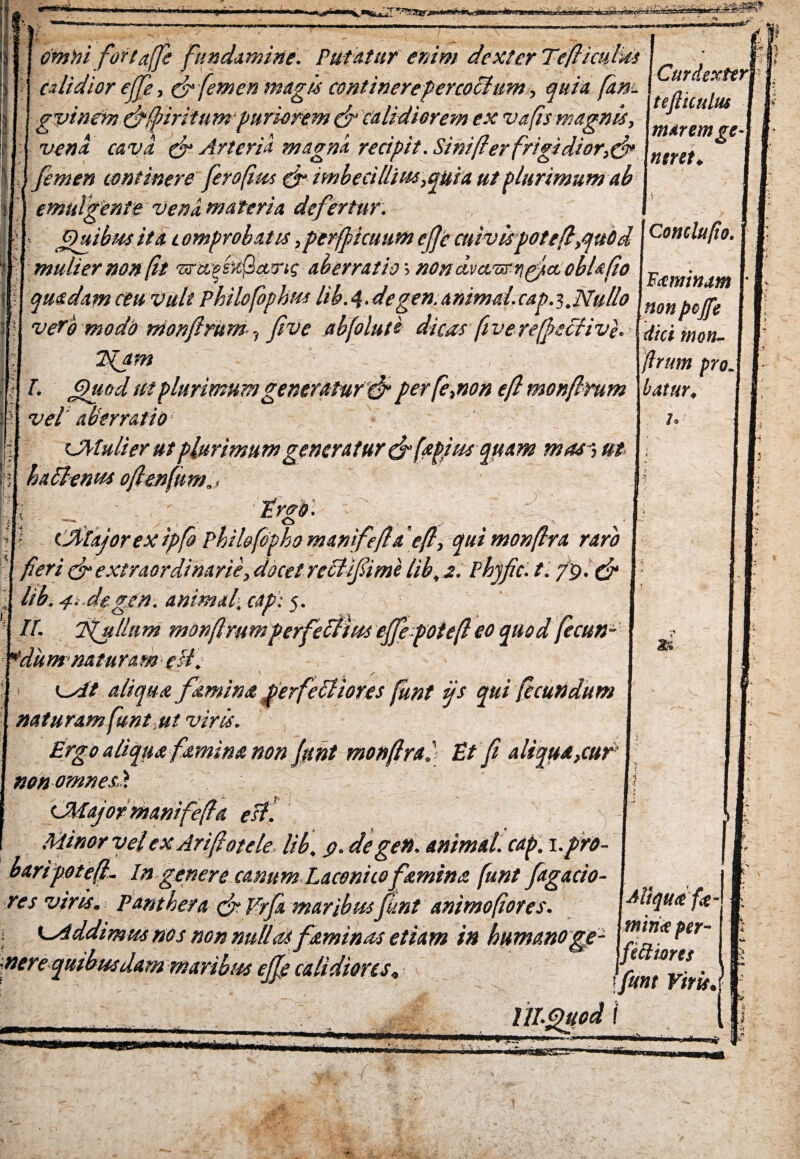 omni fortasse fundamine. Putatur enim dexter Testiculus
calidior esse, & semen magis continere percoctum, quia san-
gvinem & spiritum puriorem & calidiorem ex vasis magnis,
venâ cavâ & Arteriâ magnâ recipit. Sinister frigidior, &
semen continere serosius & imbecillius, quia ut plurimum ab
emulgente venâ materia defertur.
Cur dexter
testiculus
marem ge-
neret.
Quibus ita comprobatis, perspicuum esse cuivis potest, quòd
mulier non sit παρέκβασις aberratio; non ἀναπηρία oblæsio
quædam ceu vult Philosophus lib. 4. de gen. animal. cap. 3. Nullo
verò modo monstrum, sive absolutè dicas sive respectivè.
Nam
Conclusio.
Fæminam
non posse
dici mon-
strum pro-
batur.
I. Quod ut plurimum generatur & per se, non est monstrum
vel aberratio
1.
Mulier ut plurimum generatur & sæpius quam mas; ut
hactenus ostensum.
Ergo.
Major ex ipso Philosopho manifesta est, qui monstra rarò
fieri & extraordinariè, docet rectissimè lib. 2. Physic. t. 79. &
lib. 4. de gen. animal. cap: 5.
II. Nullum monstrum perfectius esse potest eo quod secun-
dùm naturam est.
2.
At aliquæ fæminæ perfectiores sunt ijs qui secundum
naturam sunt ut viris.
Ergo aliquæ fæminæ non sunt monstra. Et si aliquæ, cur
non omnes?
Major manifesta est.
Minor vel ex Aristotele lib. 9. de gen. animal. cap. 1. pro-
bari potest. In genere canum Laconico fæminæ sunt sagacio-
res viris. Panthera & Ursa maribus sunt animosiores.
Addimus nos non nullas fæminas etiam in humano ge-
nere quibusdam maribus esse calidiores.
Aliquæ fæ-
minæ per-
fectiores
sunt Viris.
III. Quod